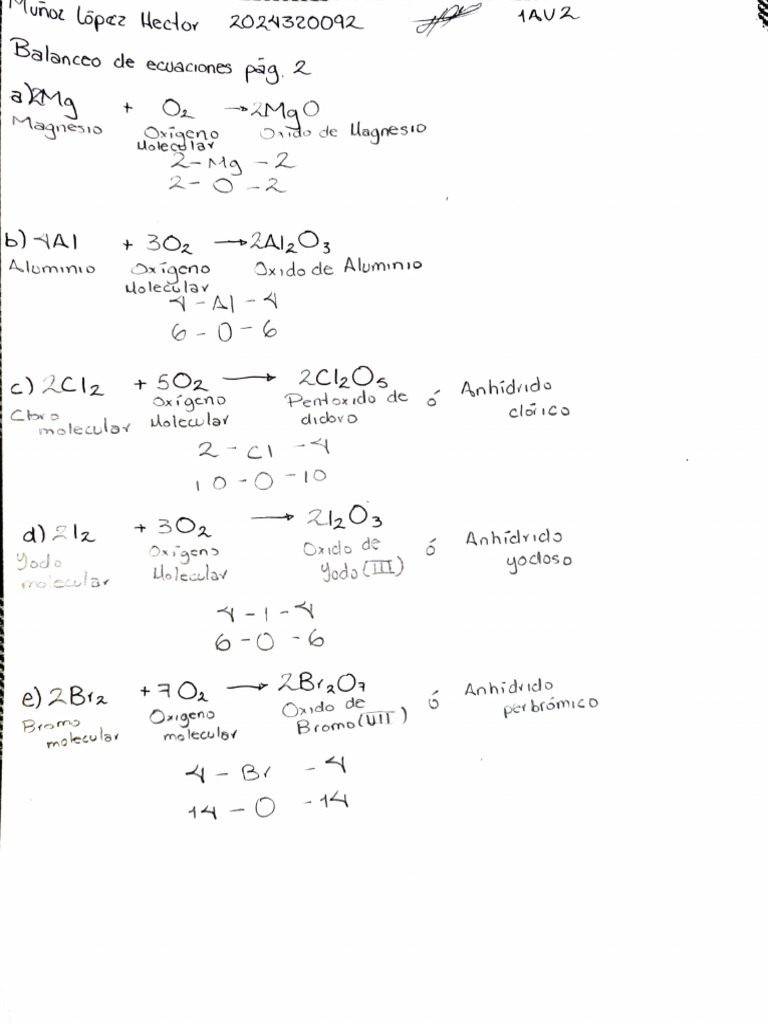 Muñoz López Hector 2024320092 1AV2
Balanceo de ecuaciones pág. 2
a) 2Mg + O₂ → 2MgO
Magnesio Oxígeno Molecular Oxido de Magnesio
2 - Mg - 2
2 - O - 2
b) 4Al + 3O₂ → 2Al₂O₃
Aluminio Oxígeno Molecular Oxido de Aluminio
4 - Al - 4
6 - O - 6
c) 2Cl₂ + 5O₂ → 2Cl₂O₅
Cloro molecular Oxígeno Molecular Pentoxido de dicloro ó Anhídrido clórico
2 - Cl - 4
10 - O - 10
d) 2I₂ + 3O₂ → 2I₂O₃
Yodo molecular Oxígeno Molecular Oxido de Yodo (III) ó Anhídrido yodoso
4 - I - 4
6 - O - 6
e) 2Br₂ + 7O₂ → 2Br₂O₇
Bromo molecular Oxigeno molecular Oxido de Bromo (VII) ó Anhídrido perbrómico
4 - Br - 4
14 - O - 14